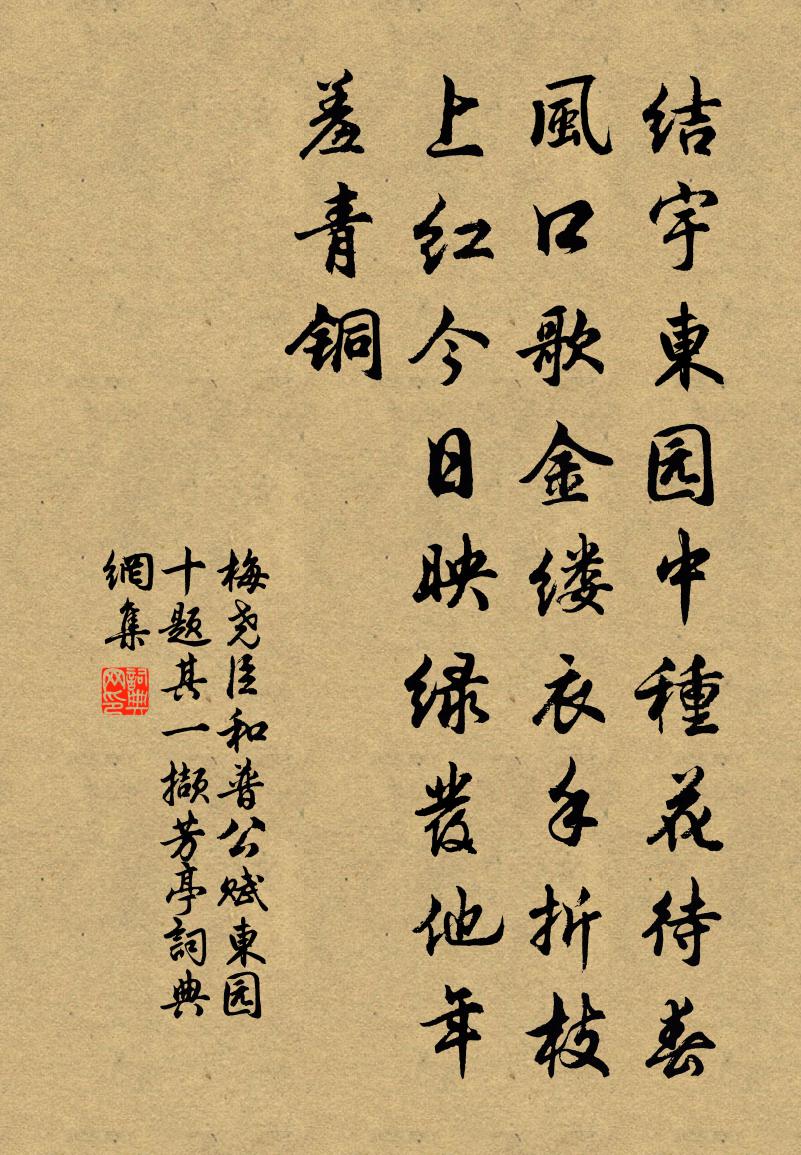 结宇東园中種花待春
風口歌金缕衣手折枝
上红今日映绿發他年
羞青铜
梅尧臣和普公赋東园
十题其一撷芳亭詞典
網集
詞典网印